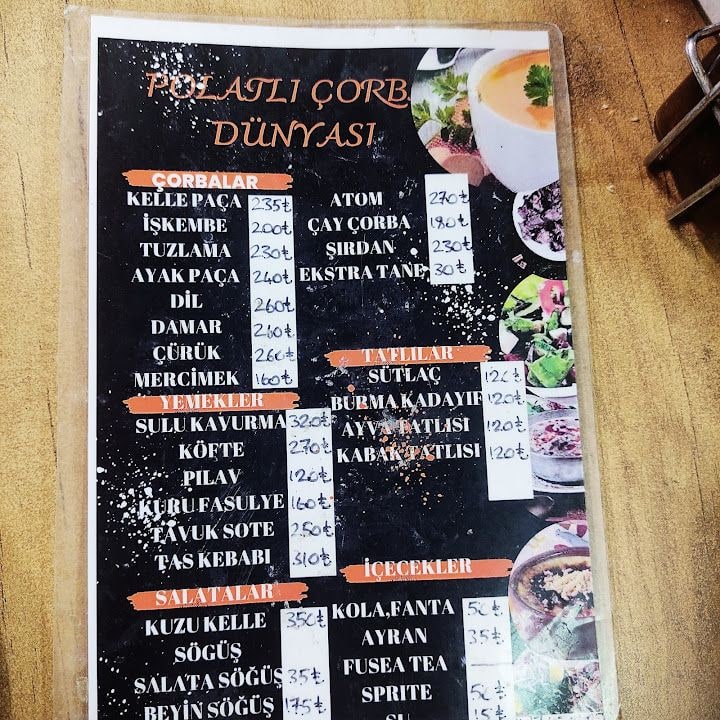 POLATLI ÇORB
DÜNYASI
ÇORBALAR
KELLE PAÇA 235₺
İŞKEMBE 200₺
TUZLAMA 230₺
AYAK PAÇA 240₺
DİL 260₺
DAMAR
ÇÜRÜK 260₺
MERCİMEK 160₺
ATOM 270₺
ÇAY ÇORBA 180₺
ŞIRDAN 230₺
EKSTRA TANE 30₺
YEMEKLER
SULU KAVURMA 320₺
KÖFTE 270₺
PILAV 120₺
KURU FASULYE 160₺
TAVUK SOTE 250₺
TAS KEBABI 310₺
TATLILAR
SÜTLAÇ 120₺
BURMA KADAYIF 120₺
AYVA TATLISI 120₺
KABAK TATLISI 120₺
SALATALAR
KUZU KELLE 350₺
SÖGÜŞ
SALATA SÖĞÜŞ 35₺
BEYİN SÖĞÜŞ 175₺
İÇECEKLER
KOLA,FANTA 50₺
AYRAN 35₺
FUSEA TEA
SPRITE 50₺
SU 15₺